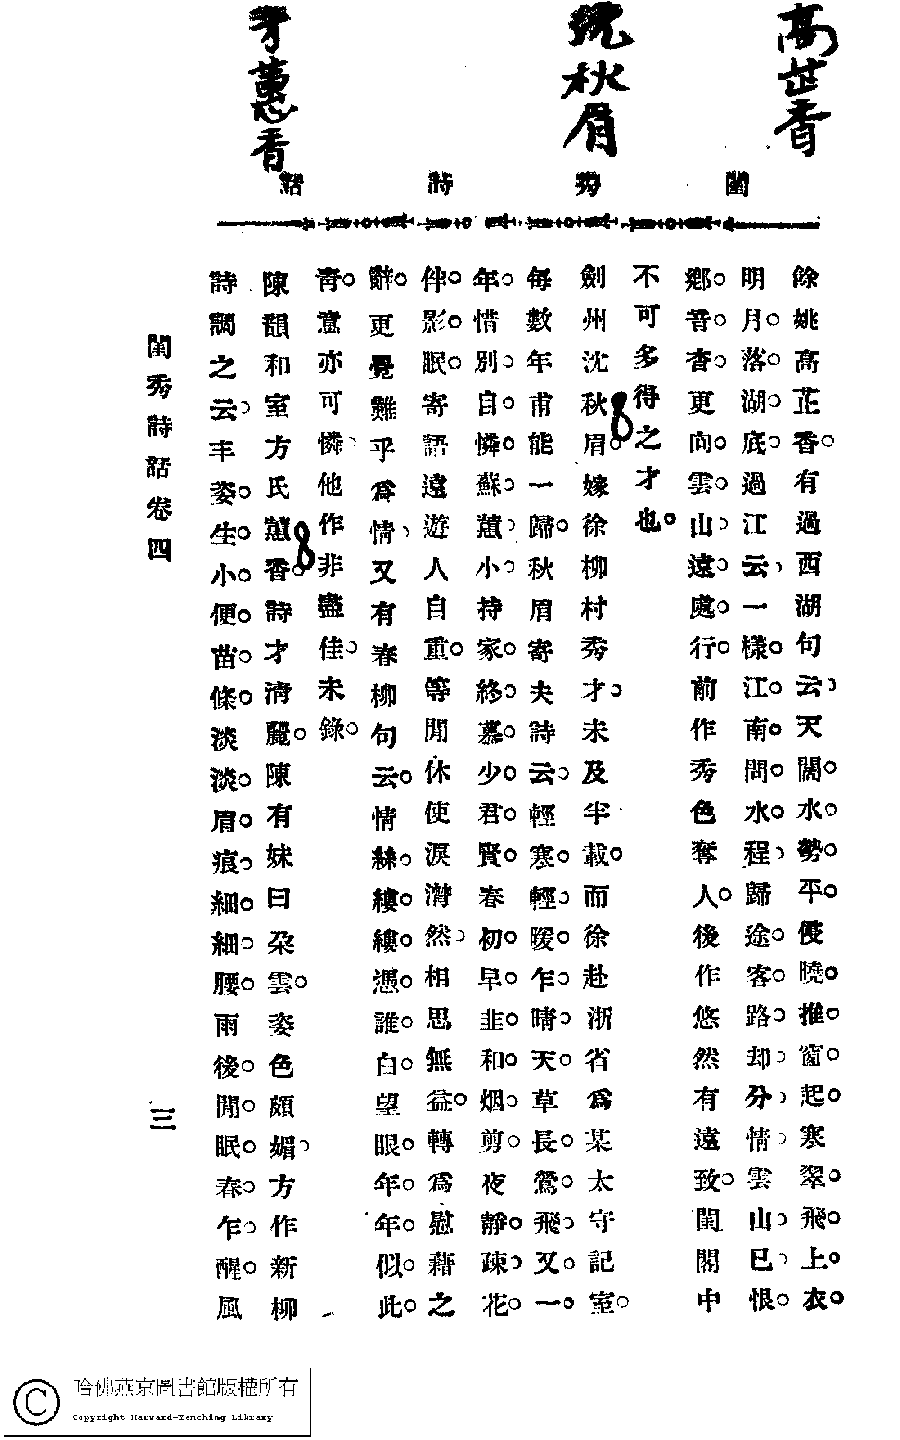 高芷香
沈秋眉
方蕙香
閨秀詩話
餘姚高芷香有過西湖句云天闊水勢平侵曉推窗起寒翠飛上衣
明月落湖底過江云一樣江南問水程歸途客路却分情雲山已恨
鄉音杳更向雲山遠處行前作秀色奪人後作悠然有遠致閨閣中
不可多得之才也
劍州沈秋眉嫁徐柳村秀才未及半載而徐赴浙省為某太守記室
每數年甫能一歸秋眉寄夫詩云輕寒輕暖乍晴天草長鶯飛又一
年惜別自憐蘇蕙小持家終慕少君賢春初早韭和烟剪夜靜疎花
伴影眠寄語遠遊人自重等閒休使淚潸然相思無益轉為慰藉之
辭更覺難乎為情又有春柳句云情絲縷縷憑誰白望眼年年似此
青意亦可憐他作非盡佳未錄
陳韻和室方氏蕙香詩才清麗陳有妹曰朵雲姿色頗媚方作新柳
詩調之云丰姿生小便苗條淡淡眉痕細細腰雨後閒眠春乍醒風
閨秀詩話卷四
三
哈佛燕京圖書館版權所有
Copyright Harvard-Yenching Library